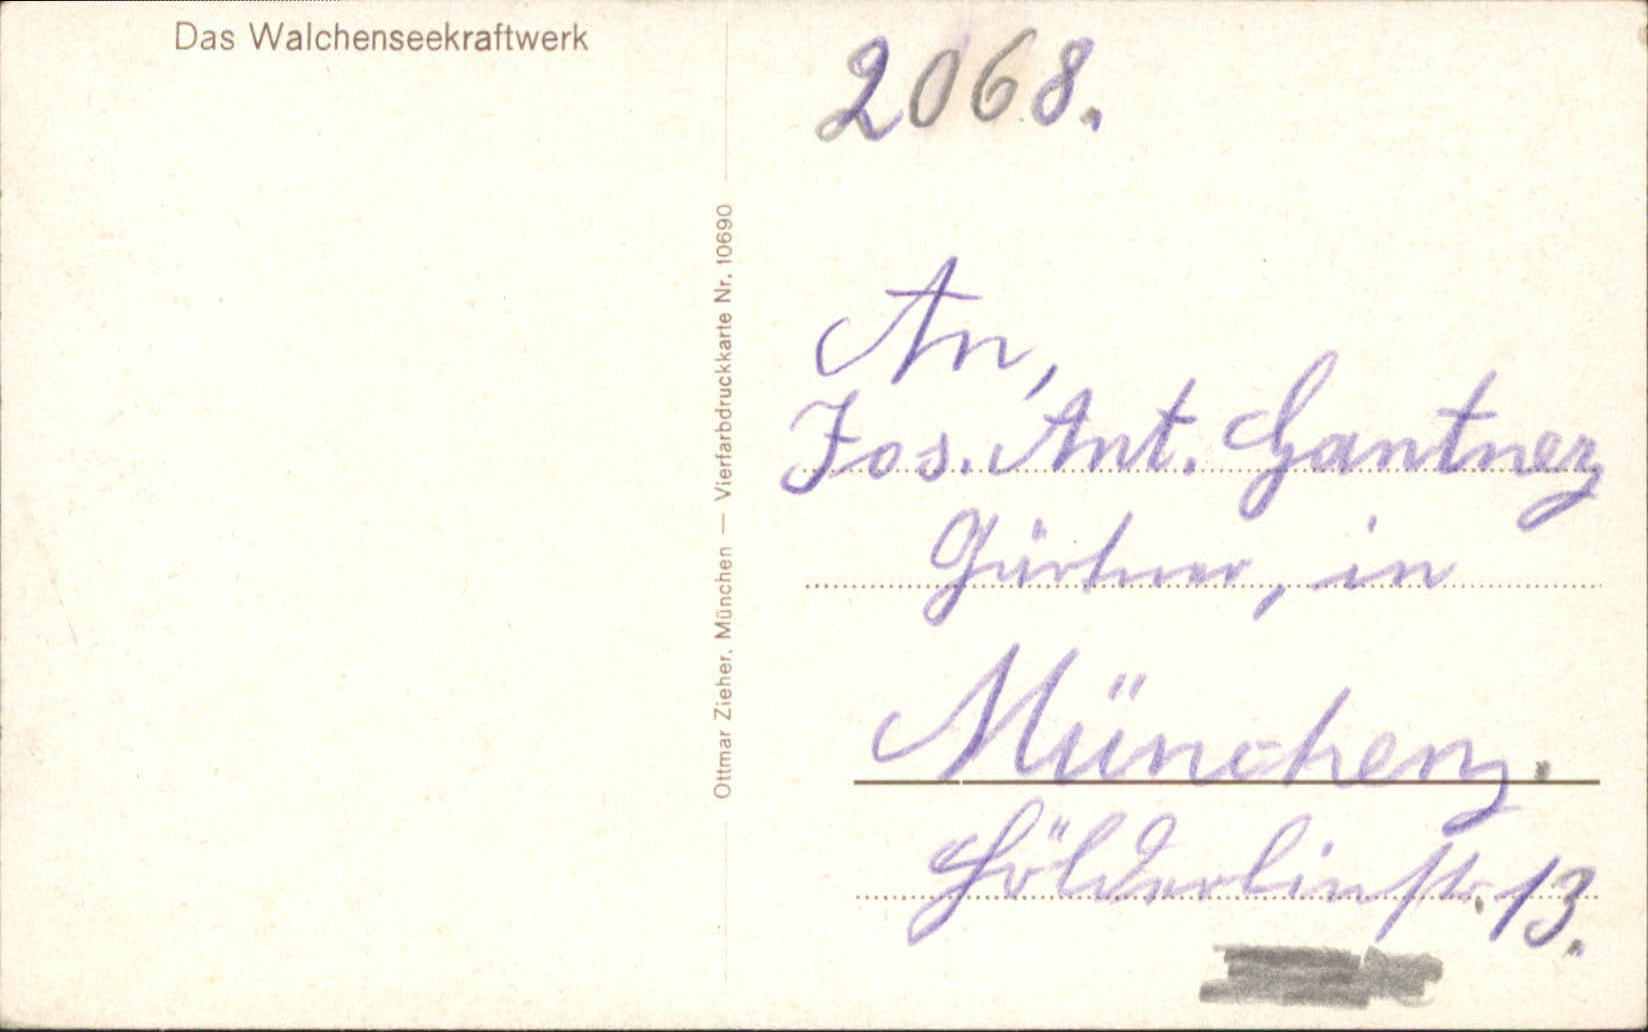 Das Walchenseekraftwerk
Ottmar Zieher, München — Vierfarbdruckkarte Nr. 10690
2068.
An,
Jos. Ant. Gantner
Gärtner, in
München.
Hölderlinstr. 13.